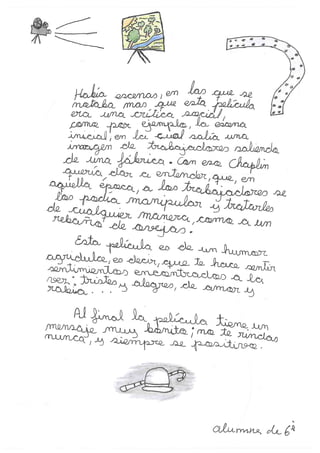 Había escenas, en las que se
notaba mas que esta película
era una crítica social,
como por ejemplo, la escena
inicial, en la cual salía una
imagen de trabajadores saliendo
de una fábrica. Con eso Chaplin
quería dar a entender, que, en
aquella época, a los trabajadores se
los podía manipular y tratarles
de cualquier manera, como a un
rebaño de ovejas.
Esta película es de un humor
agridulce, es decir, que te hace sentir
sentimientos encontrados a la
vez: tristes y alegres, de amor y
rabia...
Al final la película tiene un
mensaje muy bonito; no te rindas
nunca, y siempre se positivo.
alumna de 6ª